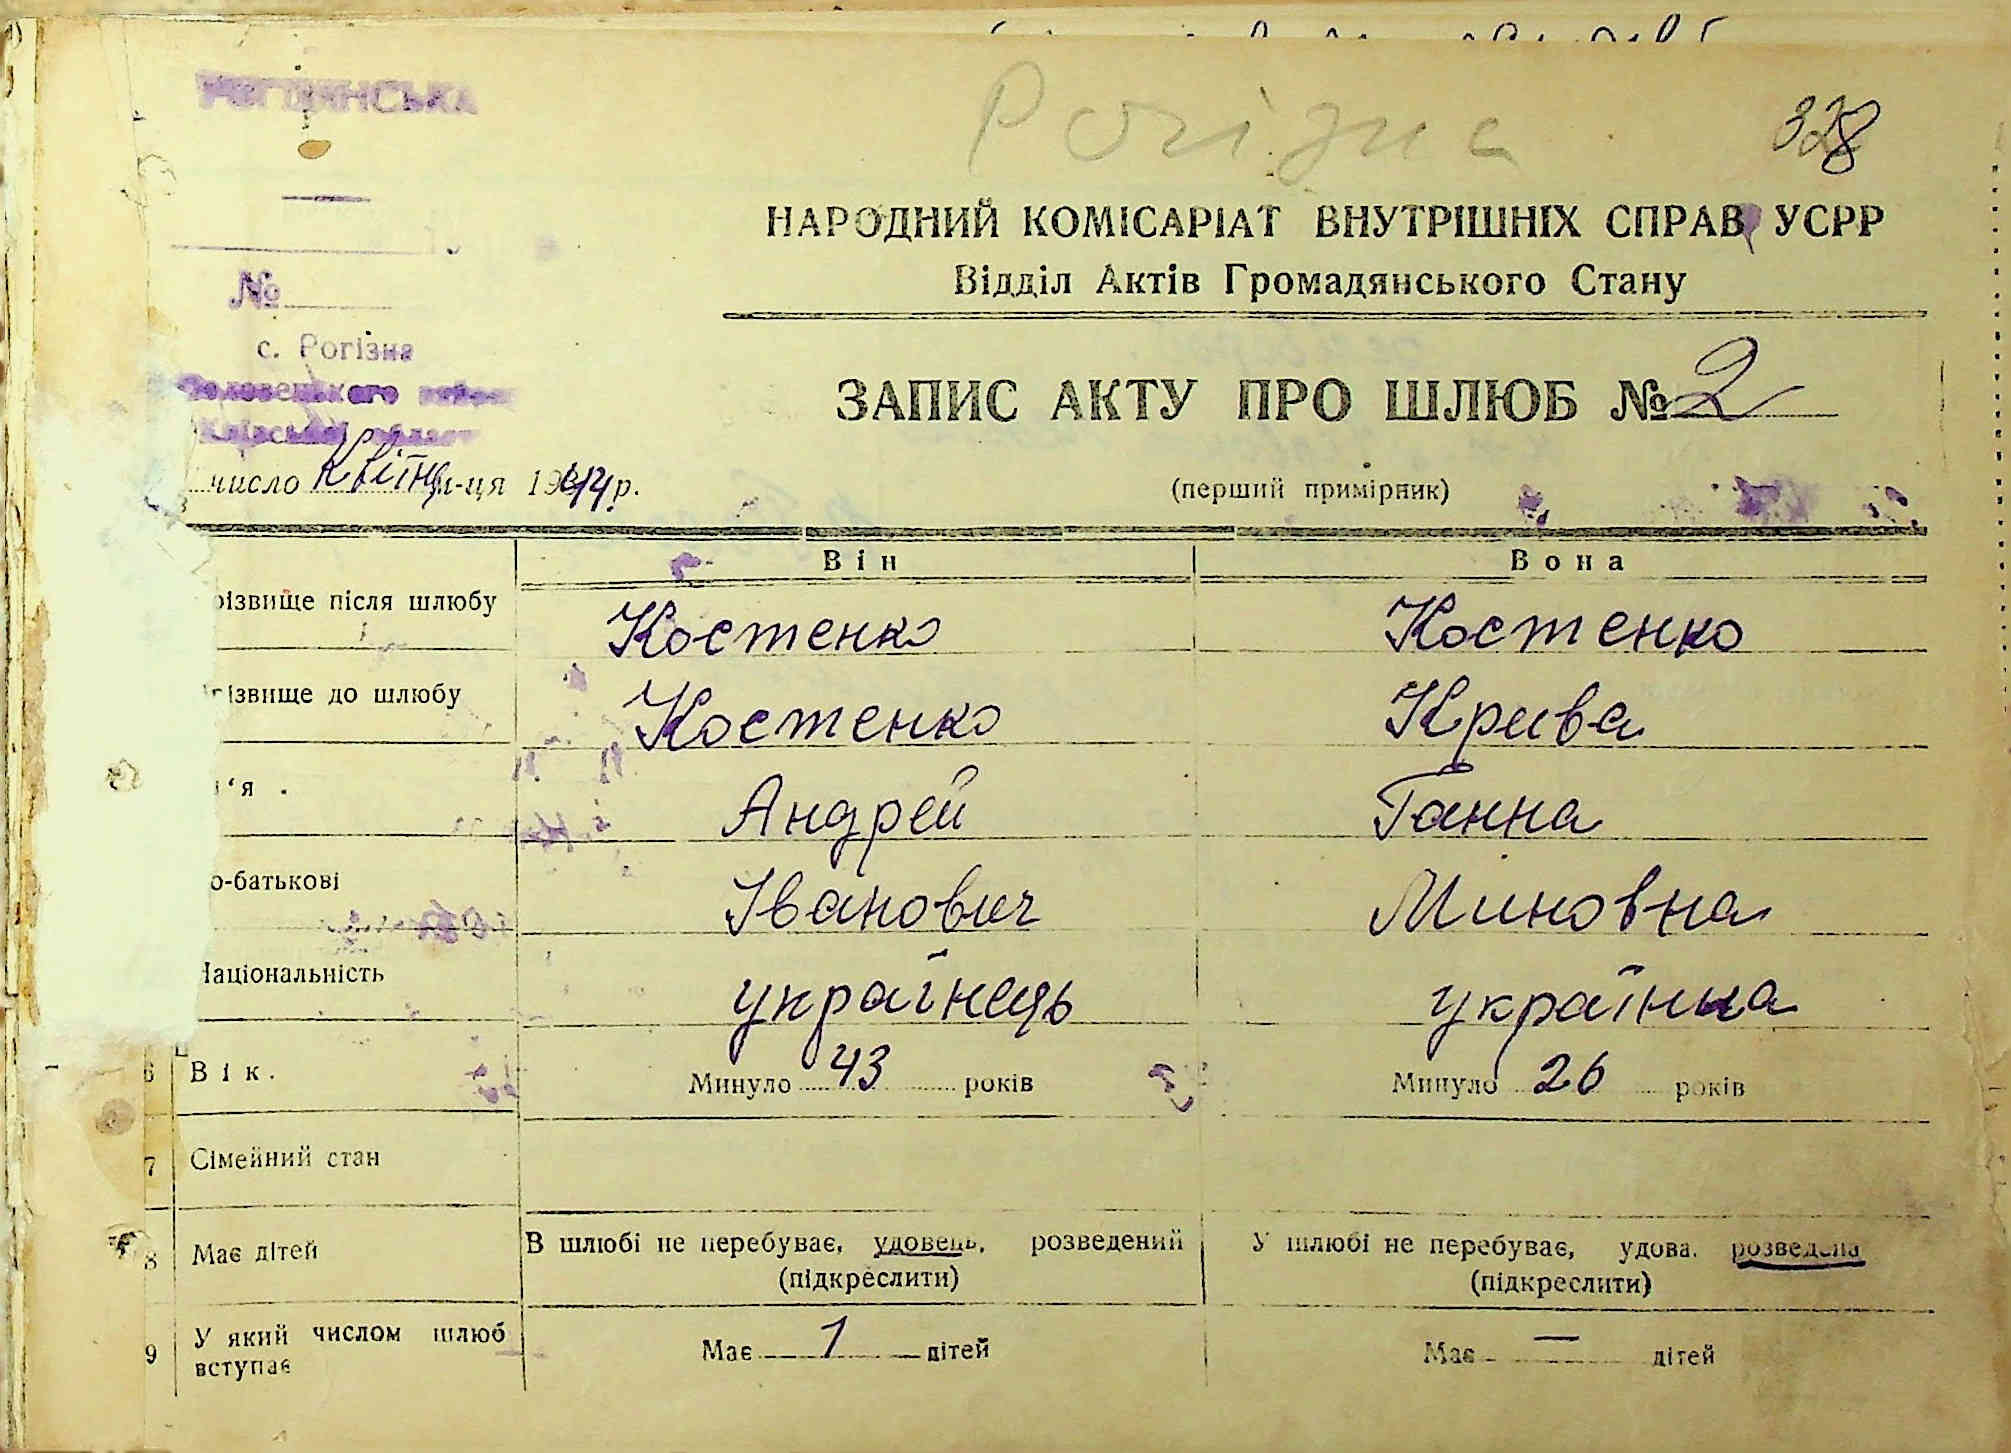 Рогізна
328
НАРОДНИЙ КОМІСАРІАТ ВНУТРІШНІХ СПРАВ УСРР
Відділ Актів Громадянського Стану
№
с. Рогізна
ЗАПИС АКТУ ПРО ШЛЮБ № 2
число Квітня м-ця 1944 р.
(перший примірник)
Він Вона
різвище після шлюбу Костенко Костенко
різвище до шлюбу Костенко Крива
'я Андрей Ганна
о-батькові Іванович Миновна
Національність українець українка
6 Вік. Минуло 43 років Минуло 26 років
7 Сімейний стан
8 Має дітей В шлюбі не перебуває, удовець, розведений У шлюбі не перебуває, удова, розведена
(підкреслити) (підкреслити)
9 У який числом шлюб вступає Має 1 дітей Має — дітей